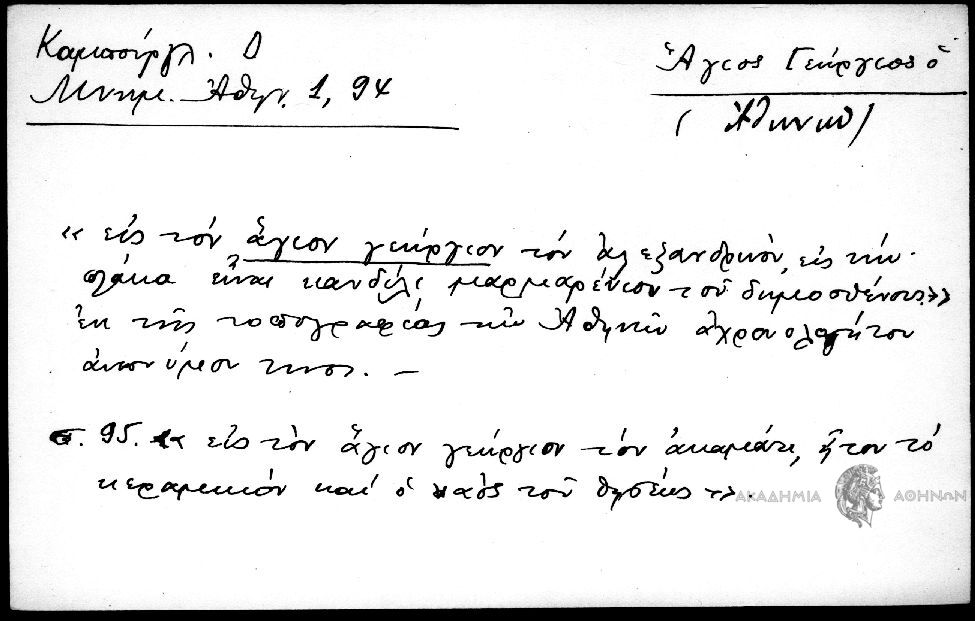 Καμπούργλ. Δ
Μνημ. Ἀθην. 1, 94
Ἅγιος Γεώργιος ὁ
(Ἀθηνῶν)
« εἰς τόν ἅγιον γεώργιον τόν ἀλεξανδρινόν, εἰς τήν
πλάκα εἶναι κανδήλι μαρμαρένιον τοῦ δημοσθένους»
ἐκ τῆς τοπογραφίας τῶν Ἀθηνῶν ἀχρονολογήτου
ἀνωνύμου τινος. –
σ. 95. « εἰς τὸν ἅγιον γεώργιον τόν ἀκαμάτη, ἦτον τό
κεραμεικόν καί ὁ ναὸς τοῦ θησέως ».
ΑΚΑΔΗΜΙΑ ΑΘΗΝΩΝ